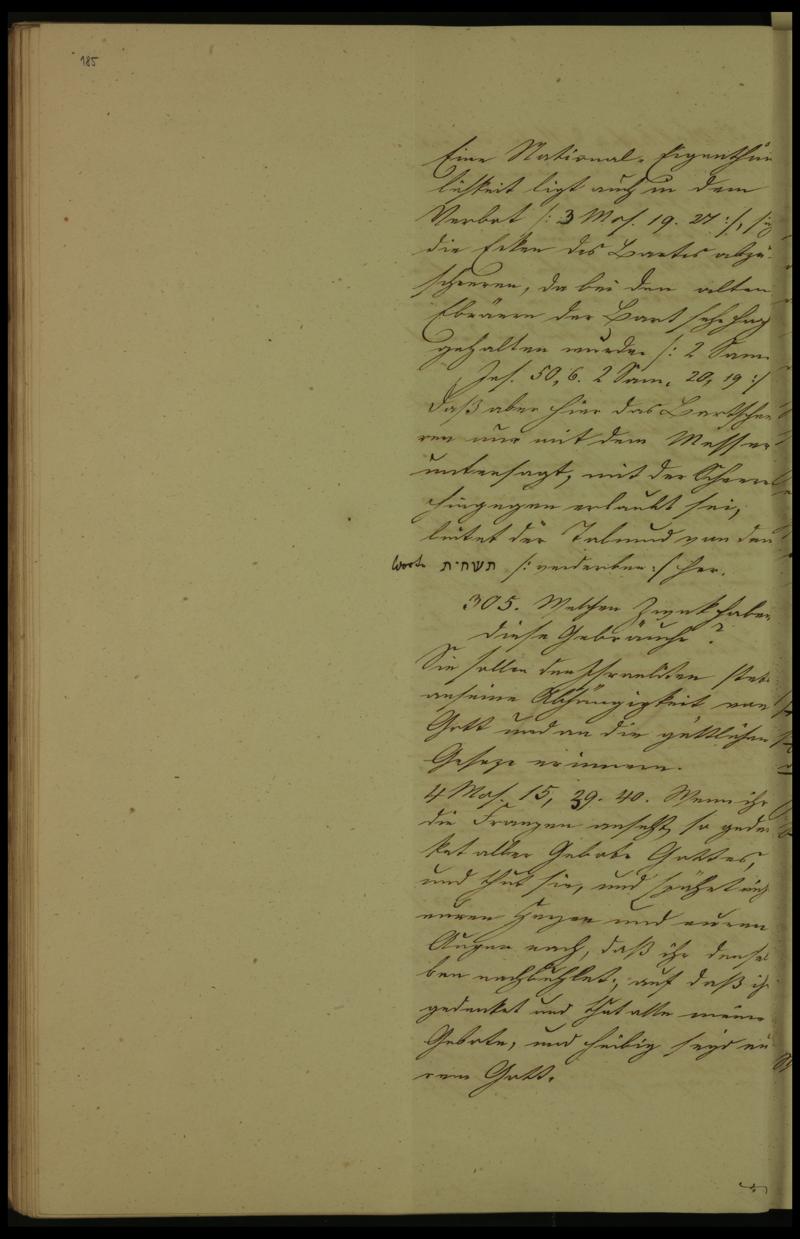 185
Eine National-Eigenthüm
lichkeit liegt auch in dem
Verbot /: 3 Mos. 19. 27 :/, sich
die Ecken des Bartes abzu-
scheeren, da bei den alten
Ebräern der Bart sehr hoch
gehalten wurde /: 2 Sam.
Jes. 50, 6. 2 Sam. 20, 19 :/
Daß aber hier das Bartschee
ren nur mit dem Messer
untersagt, mit der Scheere
hingegen erlaubt sei,
leitet der Talmud von dem
Worte תשחית /: verderben :/ her.
305. Welchen Zweck haben
diese Gebräuche?
Sie sollen den Israeliten stets
an seine Abhängigkeit von
Gott und an die göttlichen
Geseze erinnern.
4 Mos. 15, 39. 40. Wenn ihr
die Franzen anseht, so geden
ket aller Gebote Gottes,
und thut sie, und spähet nicht
euren Herzen und euren
Augen nach, daß ihr densel
ben nachbuhlet; auf daß ihr
gedenket und thut alle meine
Gebote, und heilig seyd eu
rem Gott.